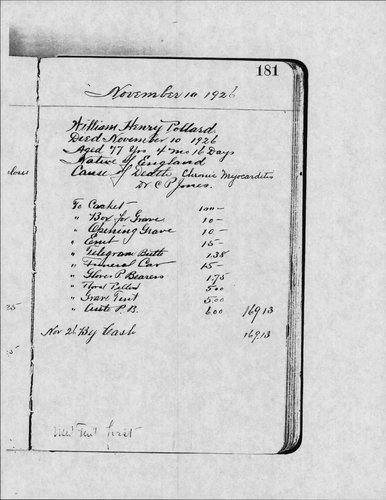 181
November 10 1926
William Henry Pollard
Died November 10 1926
Aged 77 Yrs 4 mo 16 Days
Native of England
Cause of Death Chronic Myocarditis
Dr C P Jones.
To Casket 100—
" Box for Grave 10—
" Opening Grave 10—
" 15—
" Telegram Butte 1.38
" Funeral Car 15—
" Gloves P. Bearers 1.75
" Floral 5.00
" Grave Tent 5.00
" Auto P.B. 6.00 169.13
Nov 26 By Cash 169.13